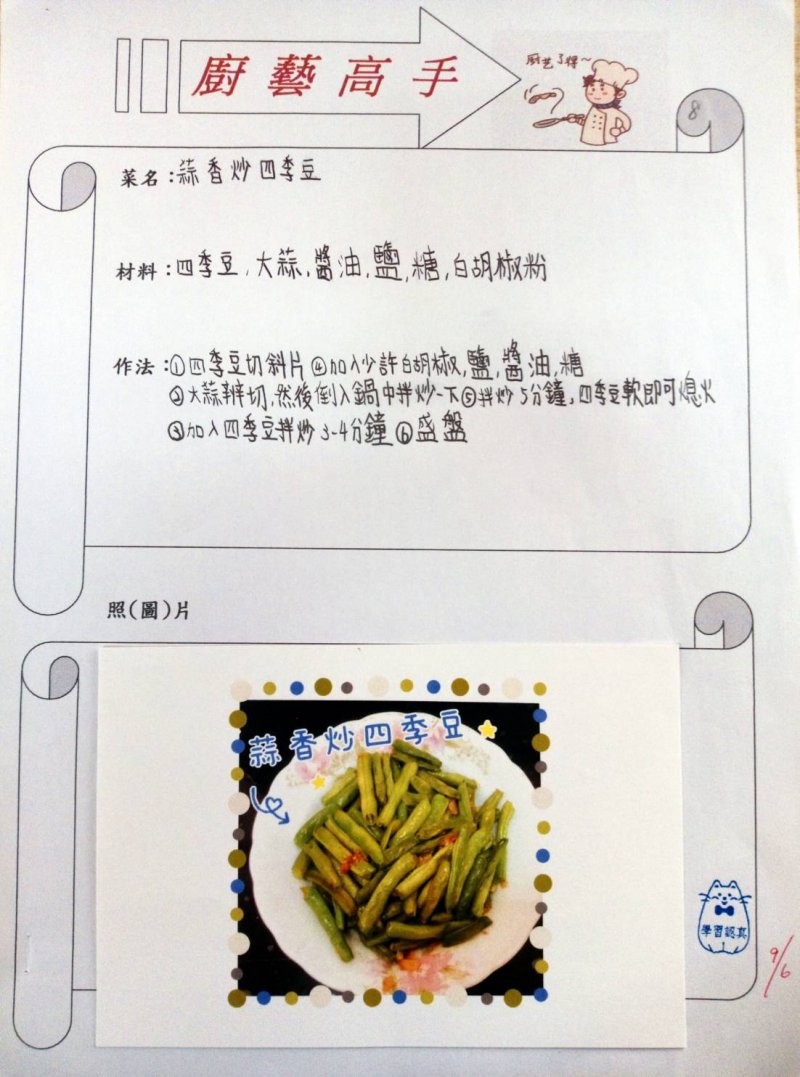 廚藝高手
厨艺了得~
8
菜名:蒜香炒四季豆
材料:四季豆,大蒜,醬油,鹽,糖,白胡椒粉
作法:①四季豆切斜片 ④加入少許白胡椒,鹽,醬油,糖
②大蒜瓣切,然後倒入鍋中拌炒一下⑤拌炒5分鐘,四季豆軟即可熄火
③加入四季豆拌炒3-4分鐘 ⑥盛盤
照(圖)片
蒜香炒四季豆
學習認真
9/6